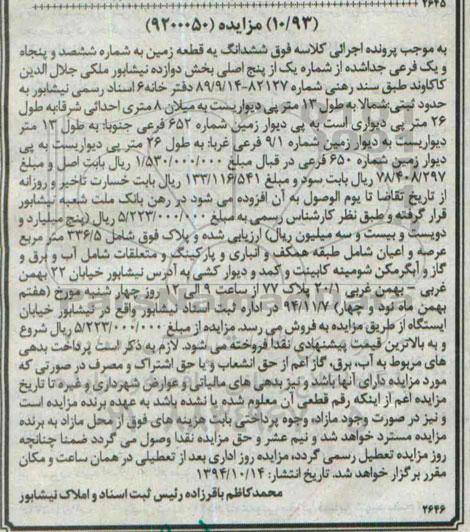 ۲۶۴۵
(۱۰/۹۳) مزایده (۹۲۰۰۰۵۰)
به موجب پرونده اجرائی کلاسه فوق ششدانگ یه قطعه زمین به شماره ششصد و پنجاه
و یک فرعی جداشده از شماره یک از پنج اصلی بخش دوازده نیشابور ملکی جلال الدین
کاکاوند طبق سند رهنی شماره ۸۲۱۲۷-۸۹/۹/۱۴ دفتر خانه۶ اسناد رسمی نیشابور به
حدود ثبتی:شمالا به طول ۱۳ متر پی دیواریست به میلان ۸ متری احداثی شرقابه طول
۲۶ متر پی دیواری است به پی دیوار زمین شماره ۶۵۲ فرعی جنوبا: به طول ۱۳ متر
دیواریست به دیوار زمین شماره ۹/۱ فرعی غربا: به طول ۲۶ متر پی دیواریست به پی
دیوار زمین شماره ۶۵۰ فرعی در قبال مبلغ ۱/۵۳۰/۰۰۰/۰۰۰ ریال بابت اصل و مبلغ
۷۸/۴۰۸/۲۹۷ ریال بابت سود و مبلغ ۱۳۳/۱۱۶/۵۴۱ ریال بابت خسارت تاخیر و روزانه
از تاریخ تقاضا تا یوم الوصول به آن افزوده می شود در رهن بانک ملت شعبه نیشابور
قرار گرفته و طبق نظر کارشناس رسمی به مبلغ ۵/۲۲۳/۰۰۰/۰۰۰ ریال (پنج میلیارد و
دویست و بیست و سه میلیون ریال) ارزیابی شده و پلاک فوق شامل ۳۳۶/۵ متر مربع
عرصه و اعیان شامل طبقه همکف و انباری و پارکینگ و متعلقات شامل آب و برق و
گاز و آبگرمکن شومینه کابینت و کمد و دیوار کشی به آدرس نیشابور خیابان ۲۲ بهمن
غربی - بهمن غربی ۲۰/۱ پلاک ۷۷ از ساعت ۹ الی ۱۲ روز چهار شنبه مورخ (هفتم
بهمن ماه نود و چهار) ۹۴/۱۱/۷ در اداره ثبت اسناد نیشابور واقع در نیشابور خیابان
ایستگاه از طریق مزایده به فروش می رسد. مزایده از مبلغ ۵/۲۲۳/۰۰۰/۰۰۰ ریال شروع
و به بالاترین قیمت پیشنهادی نقدا فروخته می شود. لازم به ذکر است پرداخت بدهی
های مربوط به آب، برق، گاز اعم از حق انشعاب و یا حق اشتراک و مصرف در صورتی که
مورد مزایده دارای آنها باشد و نیز بدهی های مالیاتی و عوارض شهرداری و غیره تا تاریخ
مزایده اعم از اینکه رقم قطعی آن معلوم شده یا نشده باشد به عهده برنده مزایده است
و نیز در صورت وجود مازاد، وجوه پرداختی بابت هزینه های فوق از محل مازاد به برنده
مزایده مسترد خواهد شد و نیم عشر و حق مزایده نقدا وصول می گردد ضمنا چنانچه
روز مزایده تعطیل رسمی گردد، مزایده روز اداری بعد از تعطیلی در همان ساعت و مکان
مقرر برگزار خواهد شد. تاریخ انتشار: ۱۳۹۴/۱۰/۱۴
محمدکاظم باقرزاده رئیس ثبت اسناد و املاک نیشابور
۲۶۴۶